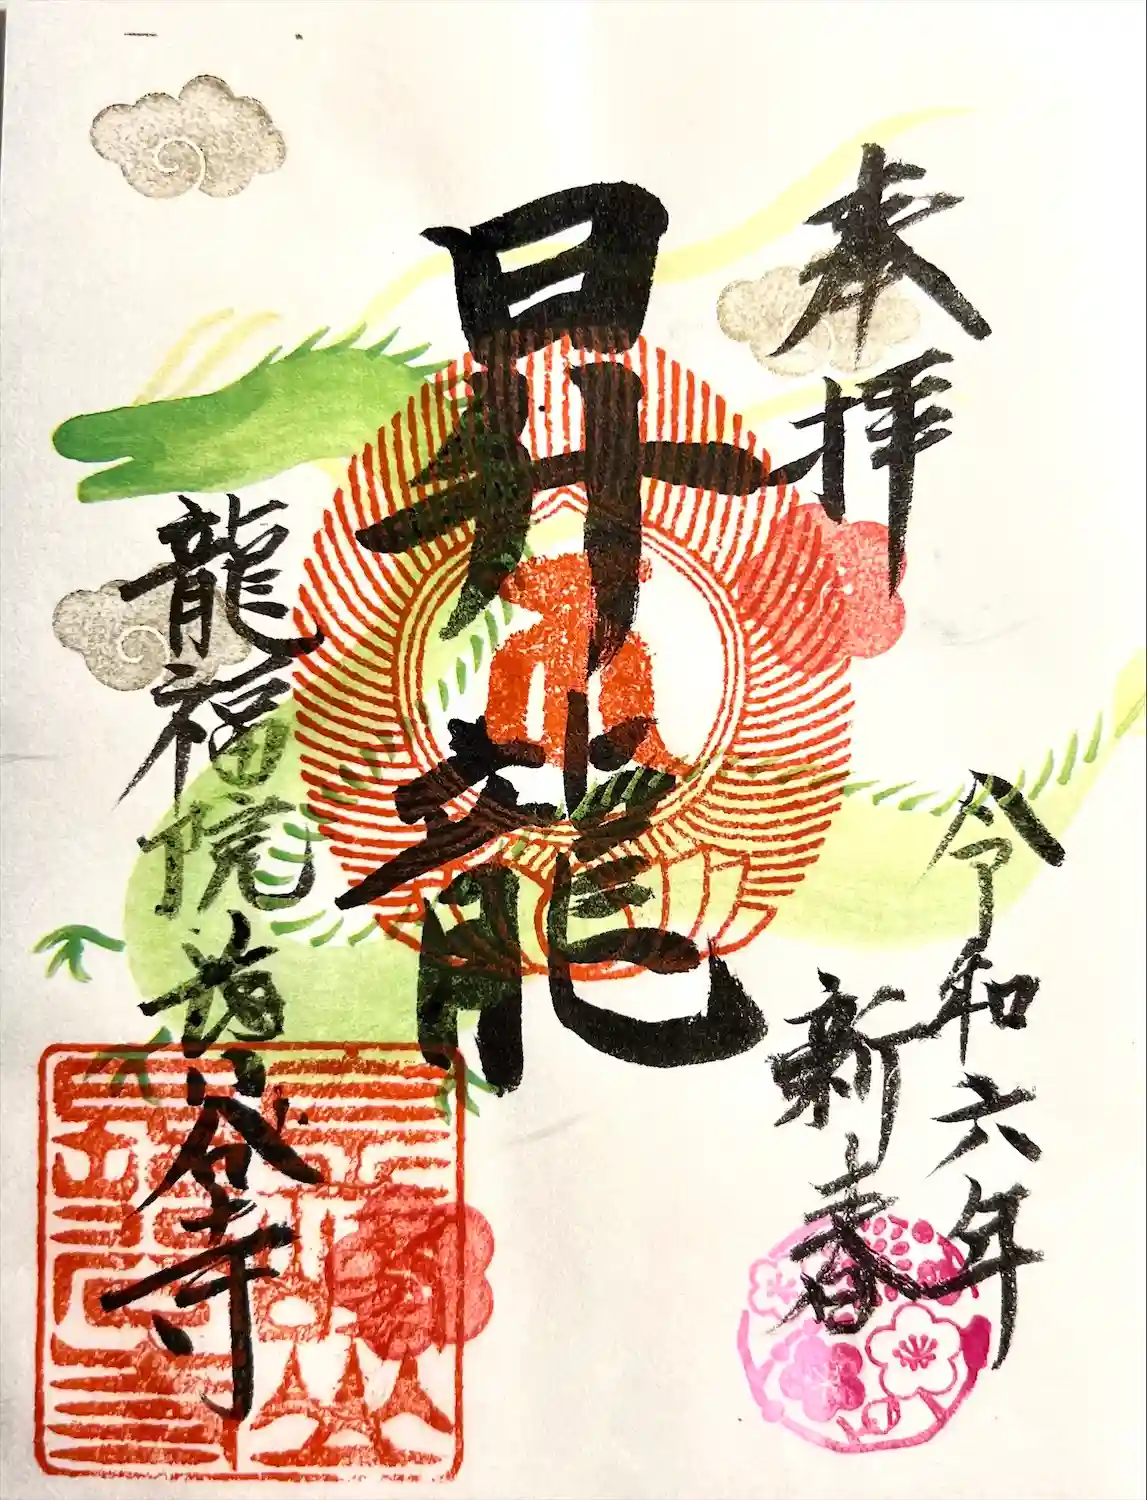 奉拝
令和六年
新春
昇龍
龍福院 寺